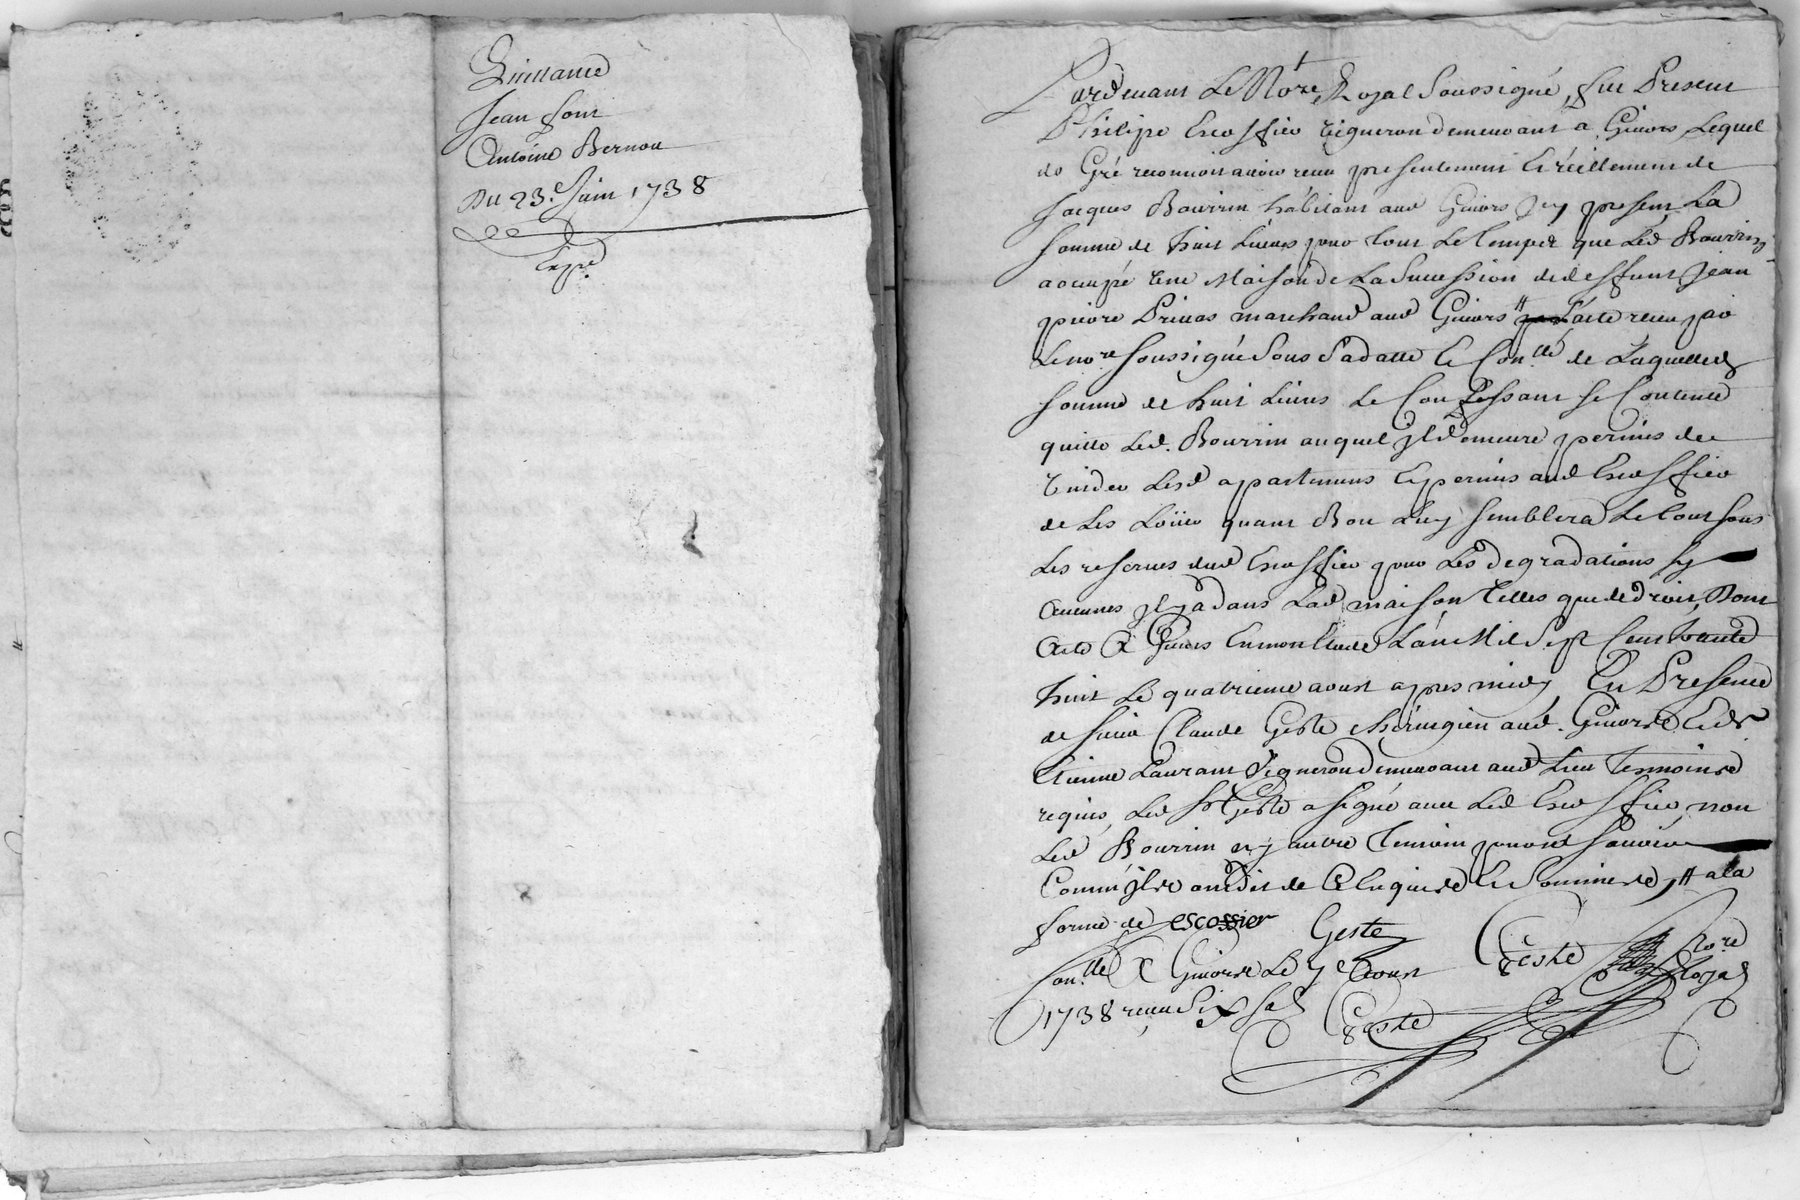 Quittance
Jean font
Antoine Bernou
Du 23.e Juin 1738
Exped
Pardevant Le Nore Royal Soussigné, fut Present
Philipe Escoffier Vigneron demeurant a Givors, Lequel
de Gré reconnoit avoir receu presentement Et réellement de
Jacques Bourrin habitant aud Givors Jcy present La
somme de huit Livres pour tout Le temps que Led Bourrin
a occupé Une Maison de La Succession de deffunt Jean
pierre Privas marchand aud Givors # L'acte receu par
Le nore soussigné Sous Sa datte Et Conllé de Laquelle
somme de huit Livres Le Confessant se Contente
quitte Led. Bourrin auquel jl demeure permis de
Vuider Lesd apartemens Et permis aud Escoffier
de Les Loüer quant Bon Luy semblera Le tout sous
Les reserves dud Escoffier pour Les degradations sy
Aucunes jl y a dans Lad maison telles que de droit, Dont
Acte A Givors En mon Etude L'an Mil Sept Cent trente
huit Le quatrieme aoust apres midy En Presence
de sieur Claude Geste chirurgien aud. Givors Et de
Etienne Laurant Vigneron demeurant aud Lieu temoins
requis, Led Sr Geste a signé avec Led Escoffier, non
Led Bourrin ny autre temoin pour ne sçavoir
Comm' jls ont dit de Ce Enquis Et Sommés # a la
forme de escossier Geste
Geste Nore Royal
Conllé A Givors Le 7e aoust
1738 receu Six sols Geste